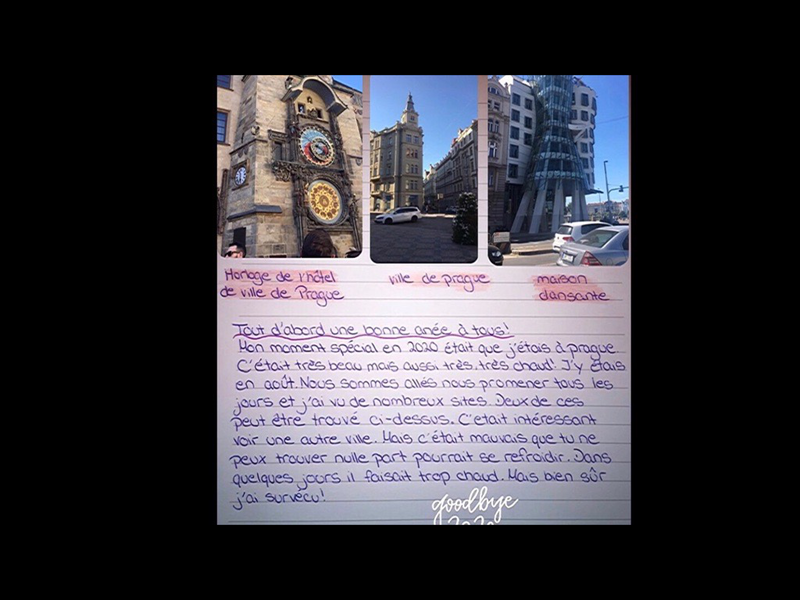 Horloge de l'hôtel
de ville de Prague
ville de prague
maison
dansante
Tout d'abord une bonne anée à tous!
Mon moment spécial en 2020 était que j'étais à prague
C'était très beau mais aussi très, très chaud! J'y étais
en août. Nous sommes allés nous promener tous les
jours et j'ai vu de nombreux sites. Deux de ces
peut être trouvé ci-dessus. C'etait intéressant
voir une autre ville. Mais c'était mauvais que tu ne
peux trouver nulle part pourrait se refroidir. Dans
quelques jours il faisait trop chaud. Mais bien sûr
j'ai survécu!
goodbye
2020